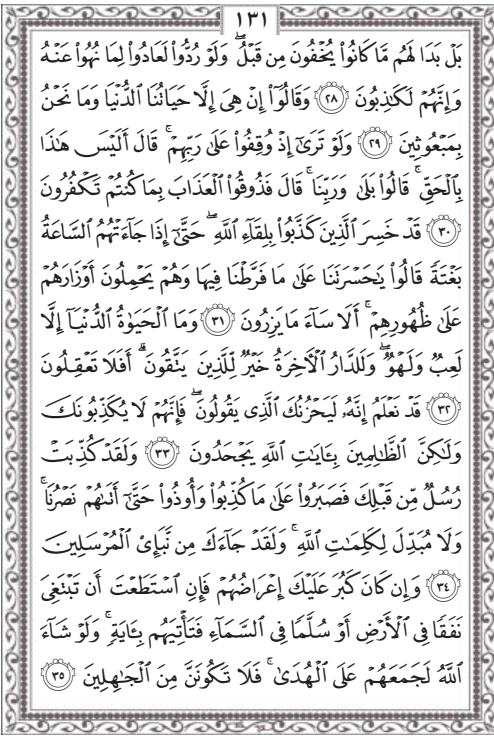 ١٣١
بَلْ بَدَا لَهُم مَّا كَانُوا۟ يُخْفُونَ مِن قَبْلُ ۖ وَلَوْ رُدُّوا۟ لَعَادُوا۟ لِمَا نُهُوا۟ عَنْهُ
وَإِنَّهُمْ لَكَٰذِبُونَ ﴿٢٨﴾ وَقَالُوٓا۟ إِنْ هِىَ إِلَّا حَيَاتُنَا ٱلدُّنْيَا وَمَا نَحْنُ
بِمَبْعُوثِينَ ﴿٢٩﴾ وَلَوْ تَرَىٰٓ إِذْ وُقِفُوا۟ عَلَىٰ رَبِّهِمْ ۚ قَالَ أَلَيْسَ هَٰذَا
بِٱلْحَقِّ ۚ قَالُوا۟ بَلَىٰ وَرَبِّنَا ۚ قَالَ فَذُوقُوا۟ ٱلْعَذَابَ بِمَا كُنتُمْ تَكْفُرُونَ
﴿٣٠﴾ قَدْ خَسِرَ ٱلَّذِينَ كَذَّبُوا۟ بِلِقَآءِ ٱللَّهِ ۖ حَتَّىٰٓ إِذَا جَآءَتْهُمُ ٱلسَّاعَةُ
بَغْتَةً قَالُوا۟ يَٰحَسْرَتَنَا عَلَىٰ مَا فَرَّطْنَا فِيهَا وَهُمْ يَحْمِلُونَ أَوْزَارَهُمْ
عَلَىٰ ظُهُورِهِمْ ۚ أَلَا سَآءَ مَا يَزِرُونَ ﴿٣١﴾ وَمَا ٱلْحَيَوٰةُ ٱلدُّنْيَآ إِلَّا
لَعِبٌ وَلَهْوٌ ۖ وَلَلدَّارُ ٱلْءَاخِرَةُ خَيْرٌ لِّلَّذِينَ يَتَّقُونَ ۗ أَفَلَا تَعْقِلُونَ
﴿٣٢﴾ قَدْ نَعْلَمُ إِنَّهُۥ لَيَحْزُنُكَ ٱلَّذِى يَقُولُونَ ۖ فَإِنَّهُمْ لَا يُكَذِّبُونَكَ
وَلَٰكِنَّ ٱلظَّٰلِمِينَ بِـَٔايَٰتِ ٱللَّهِ يَجْحَدُونَ ﴿٣٣﴾ وَلَقَدْ كُذِّبَتْ
رُسُلٌ مِّن قَبْلِكَ فَصَبَرُوا۟ عَلَىٰ مَا كُذِّبُوا۟ وَأُوذُوا۟ حَتَّىٰٓ أَتَىٰهُمْ نَصْرُنَا ۚ
وَلَا مُبَدِّلَ لِكَلِمَٰتِ ٱللَّهِ ۚ وَلَقَدْ جَآءَكَ مِن نَّبَإِى۟ ٱلْمُرْسَلِينَ
﴿٣٤﴾ وَإِن كَانَ كَبُرَ عَلَيْكَ إِعْرَاضُهُمْ فَإِنِ ٱسْتَطَعْتَ أَن تَبْتَغِىَ
نَفَقًا فِى ٱلْأَرْضِ أَوْ سُلَّمًا فِى ٱلسَّمَآءِ فَتَأْتِيَهُم بِـَٔايَةٍ ۚ وَلَوْ شَآءَ
ٱللَّهُ لَجَمَعَهُمْ عَلَى ٱلْهُدَىٰ ۚ فَلَا تَكُونَنَّ مِنَ ٱلْجَٰهِلِينَ ﴿٣٥﴾